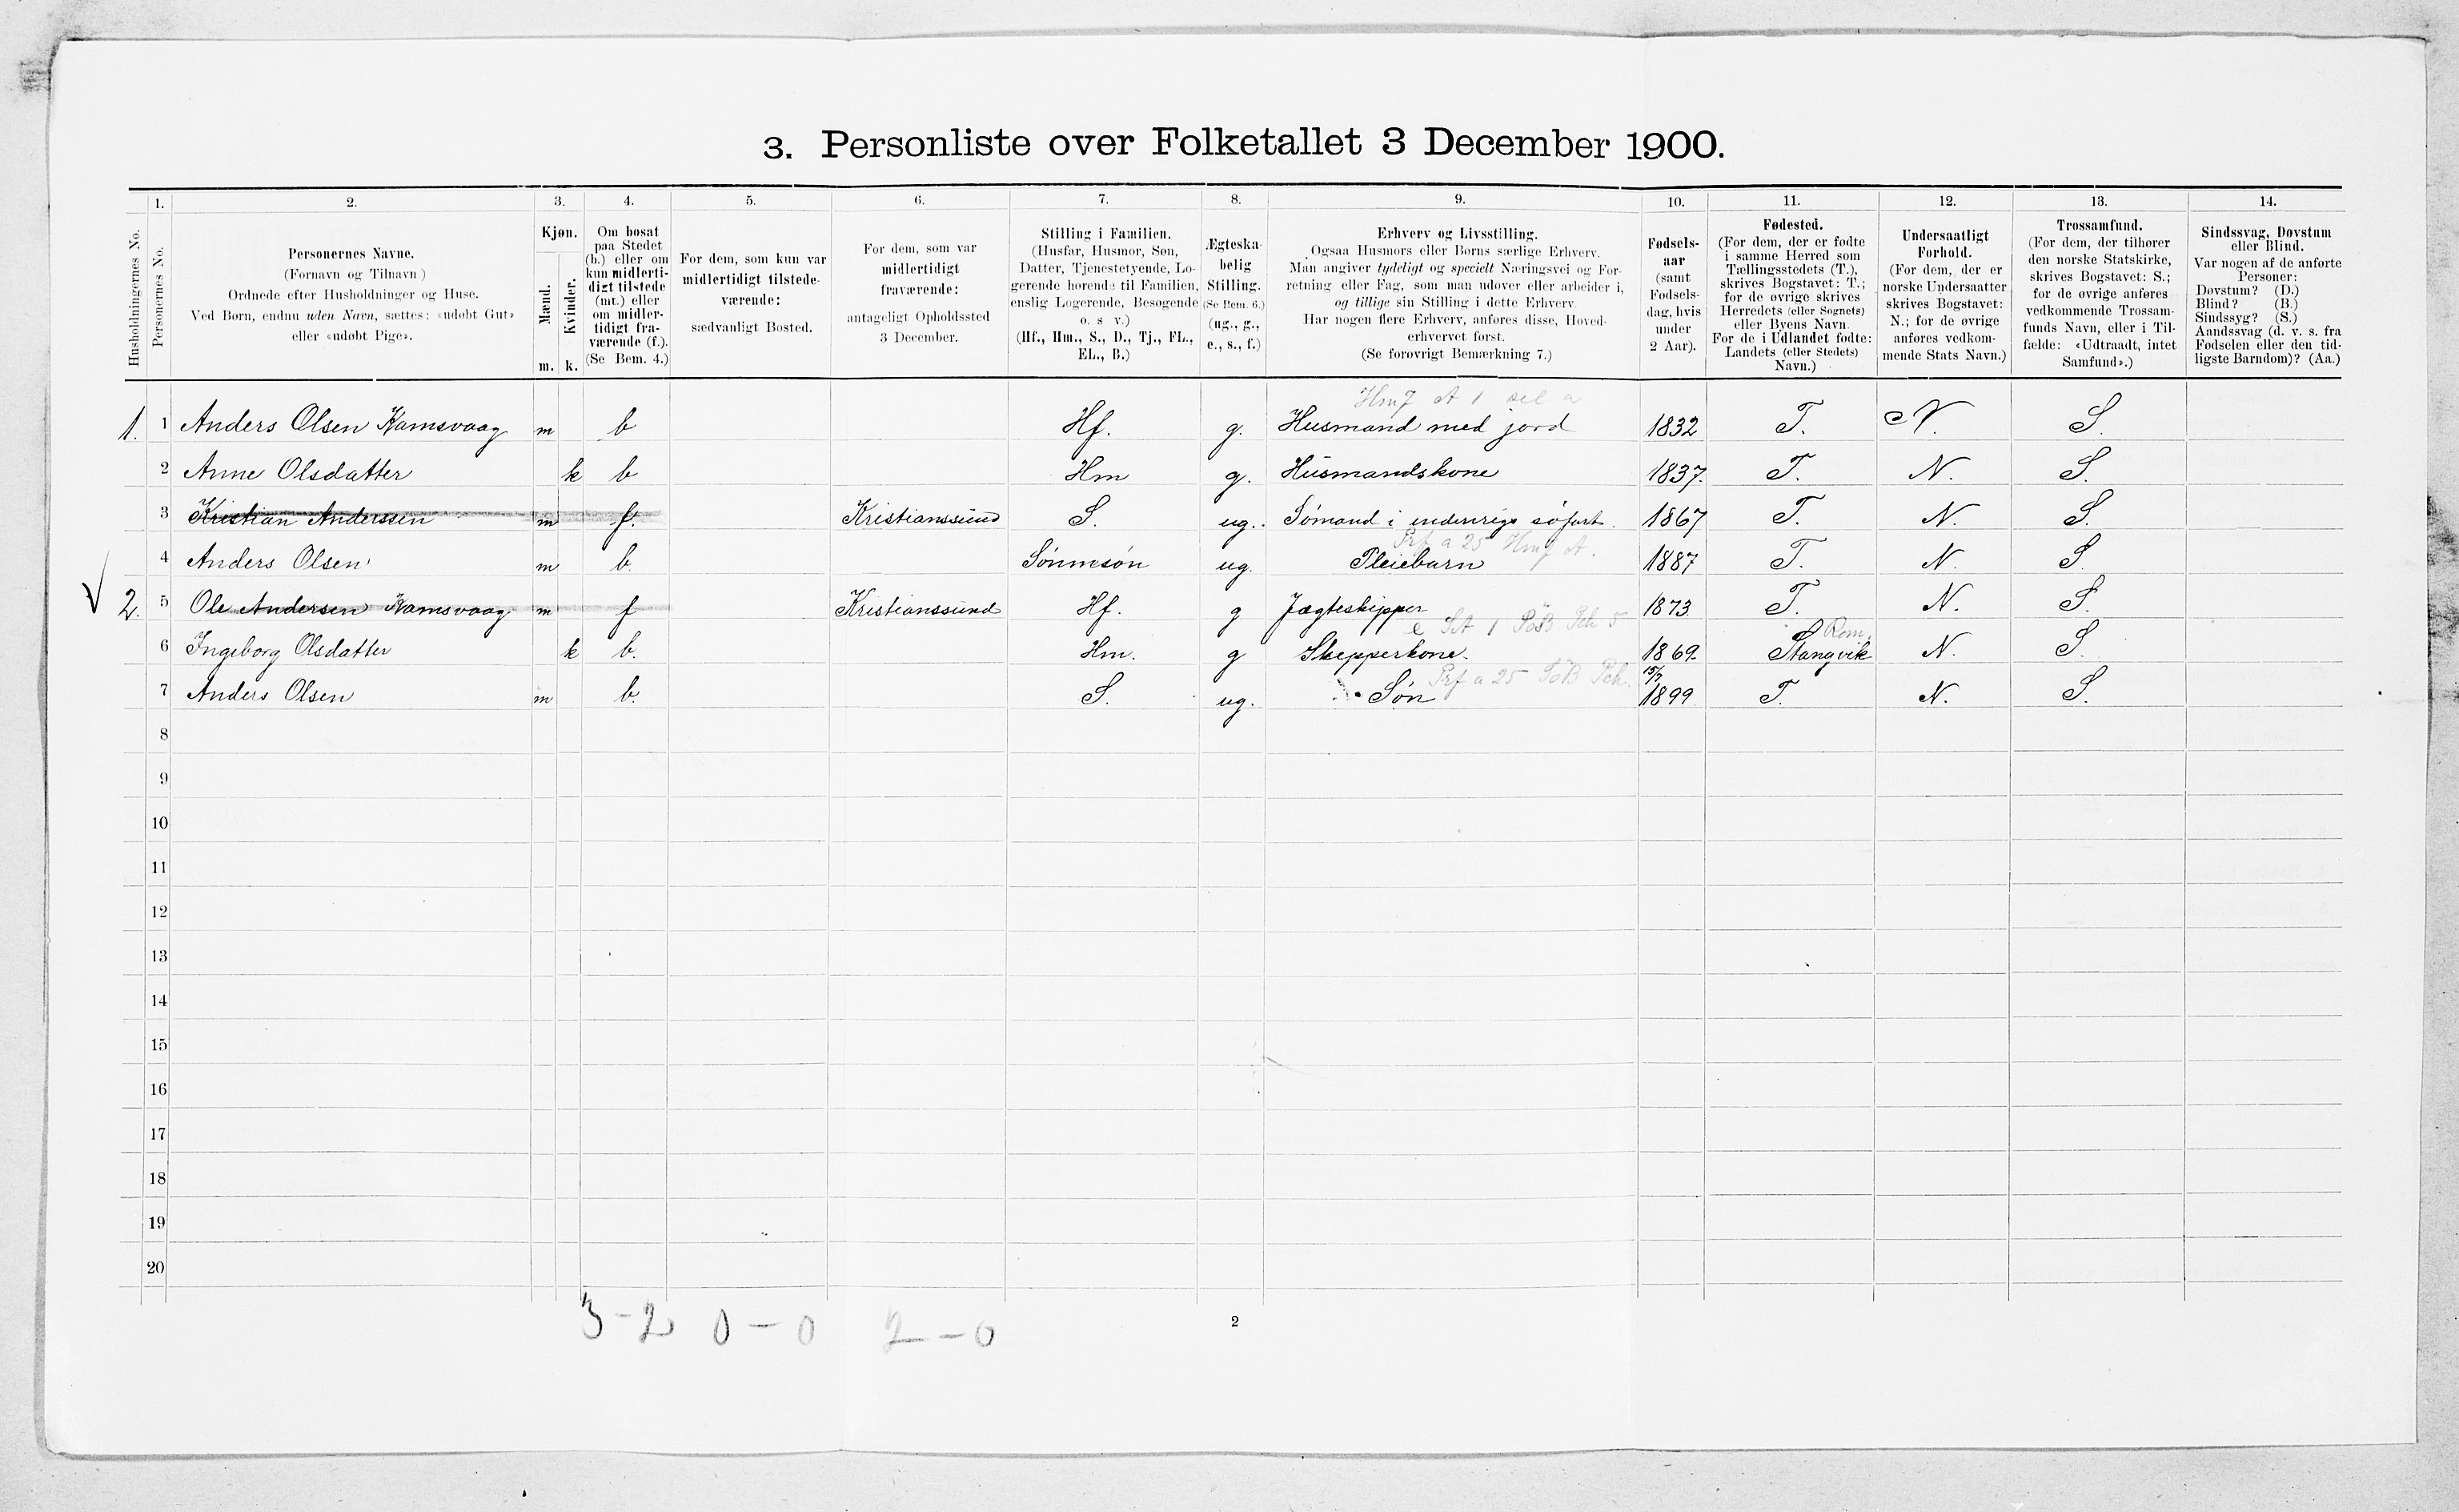 3. Personliste over Folketallet 3 December 1900.
Husholdningernes No.
1. 2. 3. 4. 5. 6. 7. 8. 9. 10. 11. 12. 13. 14.
Personernes No.
Personernes Navne.
(Fornavn og Tilnavn)
Ordnede efter Husholdninger og Huse.
Ved Børn, endnu uden Navn, sættes: «udøbt Gut»
eller «udøbt Pige».
Kjøn.
Mænd.
Kvinder.
m. k.
Om bosat
paa Stedet
(b.) eller om
kun midlerti-
digt tilstede
(mt.) eller
om midler-
tidigt fra-
værende (f.).
(Se Bem. 4.)
For dem, som kun var
midlertidigt tilstede-
værende:
sædvanligt Bosted.
For dem, som var
midlertidigt
fraværende:
antageligt Opholdssted
3 December.
Stilling i Familien.
(Husfar, Husmor, Søn,
Datter, Tjenestetyende, Lo-
gerende hørende til Familien,
enslig Logerende, Besøgende
o. s v.)
(Hf., Hm., S., D., Tj., FL.,
EL., B.)
Ægteska-
belig
Stilling.
(Se Bem. 6.)
(ug., g.,
e., s., f.)
Erhverv og Livsstilling.
Ogsaa Husmors eller Børns særlige Erhverv.
Man angiver tydeligt og specielt Næringsvei og For-
retning eller Fag, som man udøver eller arbeider i,
og tillige sin Stilling i dette Erhverv.
Har nogen flere Erhverv, anføres disse, Hoved-
erhvervet først.
(Se forøvrigt Bemærkning 7.)
Fødsels-
aar
(samt
Fødsels-
dag, hvis
under
2 Aar).
Fødested.
(For dem, der er fødte
i samme Herred som
Tællingsstedets (T.),
skrives Bogstavet: T.;
for de øvrige skrives
Herredets (eller Sognets)
eller Byens Navn.
For de i Udlandet fødte:
Landets (eller Stedets)
Navn.)
Undersaatligt
Forhold.
(For dem, der er
norske Undersaatter
skrives Bogstavet:
N.; for de øvrige
anføres vedkom-
mende Stats Navn.)
Trossamfund.
(For dem, der tilhører
den norske Statskirke,
skrives Bogstavet: S.;
for de øvrige anføres
vedkommende Trossam-
funds Navn, eller i Til-
fælde: «Udtraadt, intet
Samfund».)
Sindssvag, Døvstum
eller Blind.
Var nogen af de anførte
Personer:
Døvstum? (D.)
Blind? (B.)
Sindssyg? (S.)
Aandssvag (d. v. s. fra
Fødselen eller den tid-
ligste Barndom)? (Aa.)
1. 1 Anders Olsen Kamsvaag m b Hf. g. Husmand med jord 1832 T. N. S.
2 Anne Olsdatter k b Hm g. Husmandskone 1837. T. N. S.
3 Kristian Anderssen m f. Kristianssund S. ug. Sømand i indenrigs søfart. 1867 T. N. S.
Prf a 25 Hmf A.
4 Anders Olsen m b. Sønnesøn ug. Pleiebarn 1887 T. N. S.
2. 5 Ole Andersen Kamsvaag m f Kristianssund Hf. g Jægteskipper 1873 T. N. S.
6 Ingeborg Olsdatter k b. Hm. g Skipperkone. 1869 Stangvik Rom. N. S.
7 Anders Olsen m b. S. ug. Søn 15/7 1899 T. N. S.
8
9
10
11
12
13
14
15
16
17
18
19
20
3-2 0-0 2-0
2